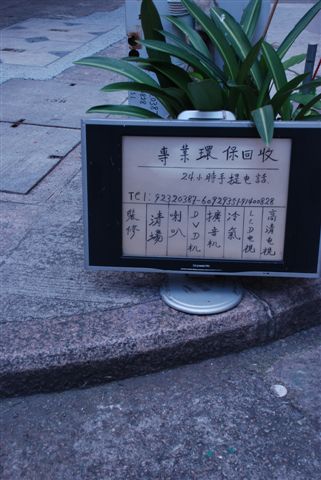 專業環保回收
24小時手提電話
Tel: 92320387-60929351-91400828
裝修
清場
喇叭
DVD机
擴音机
冷氣
LCD电視
高清电視